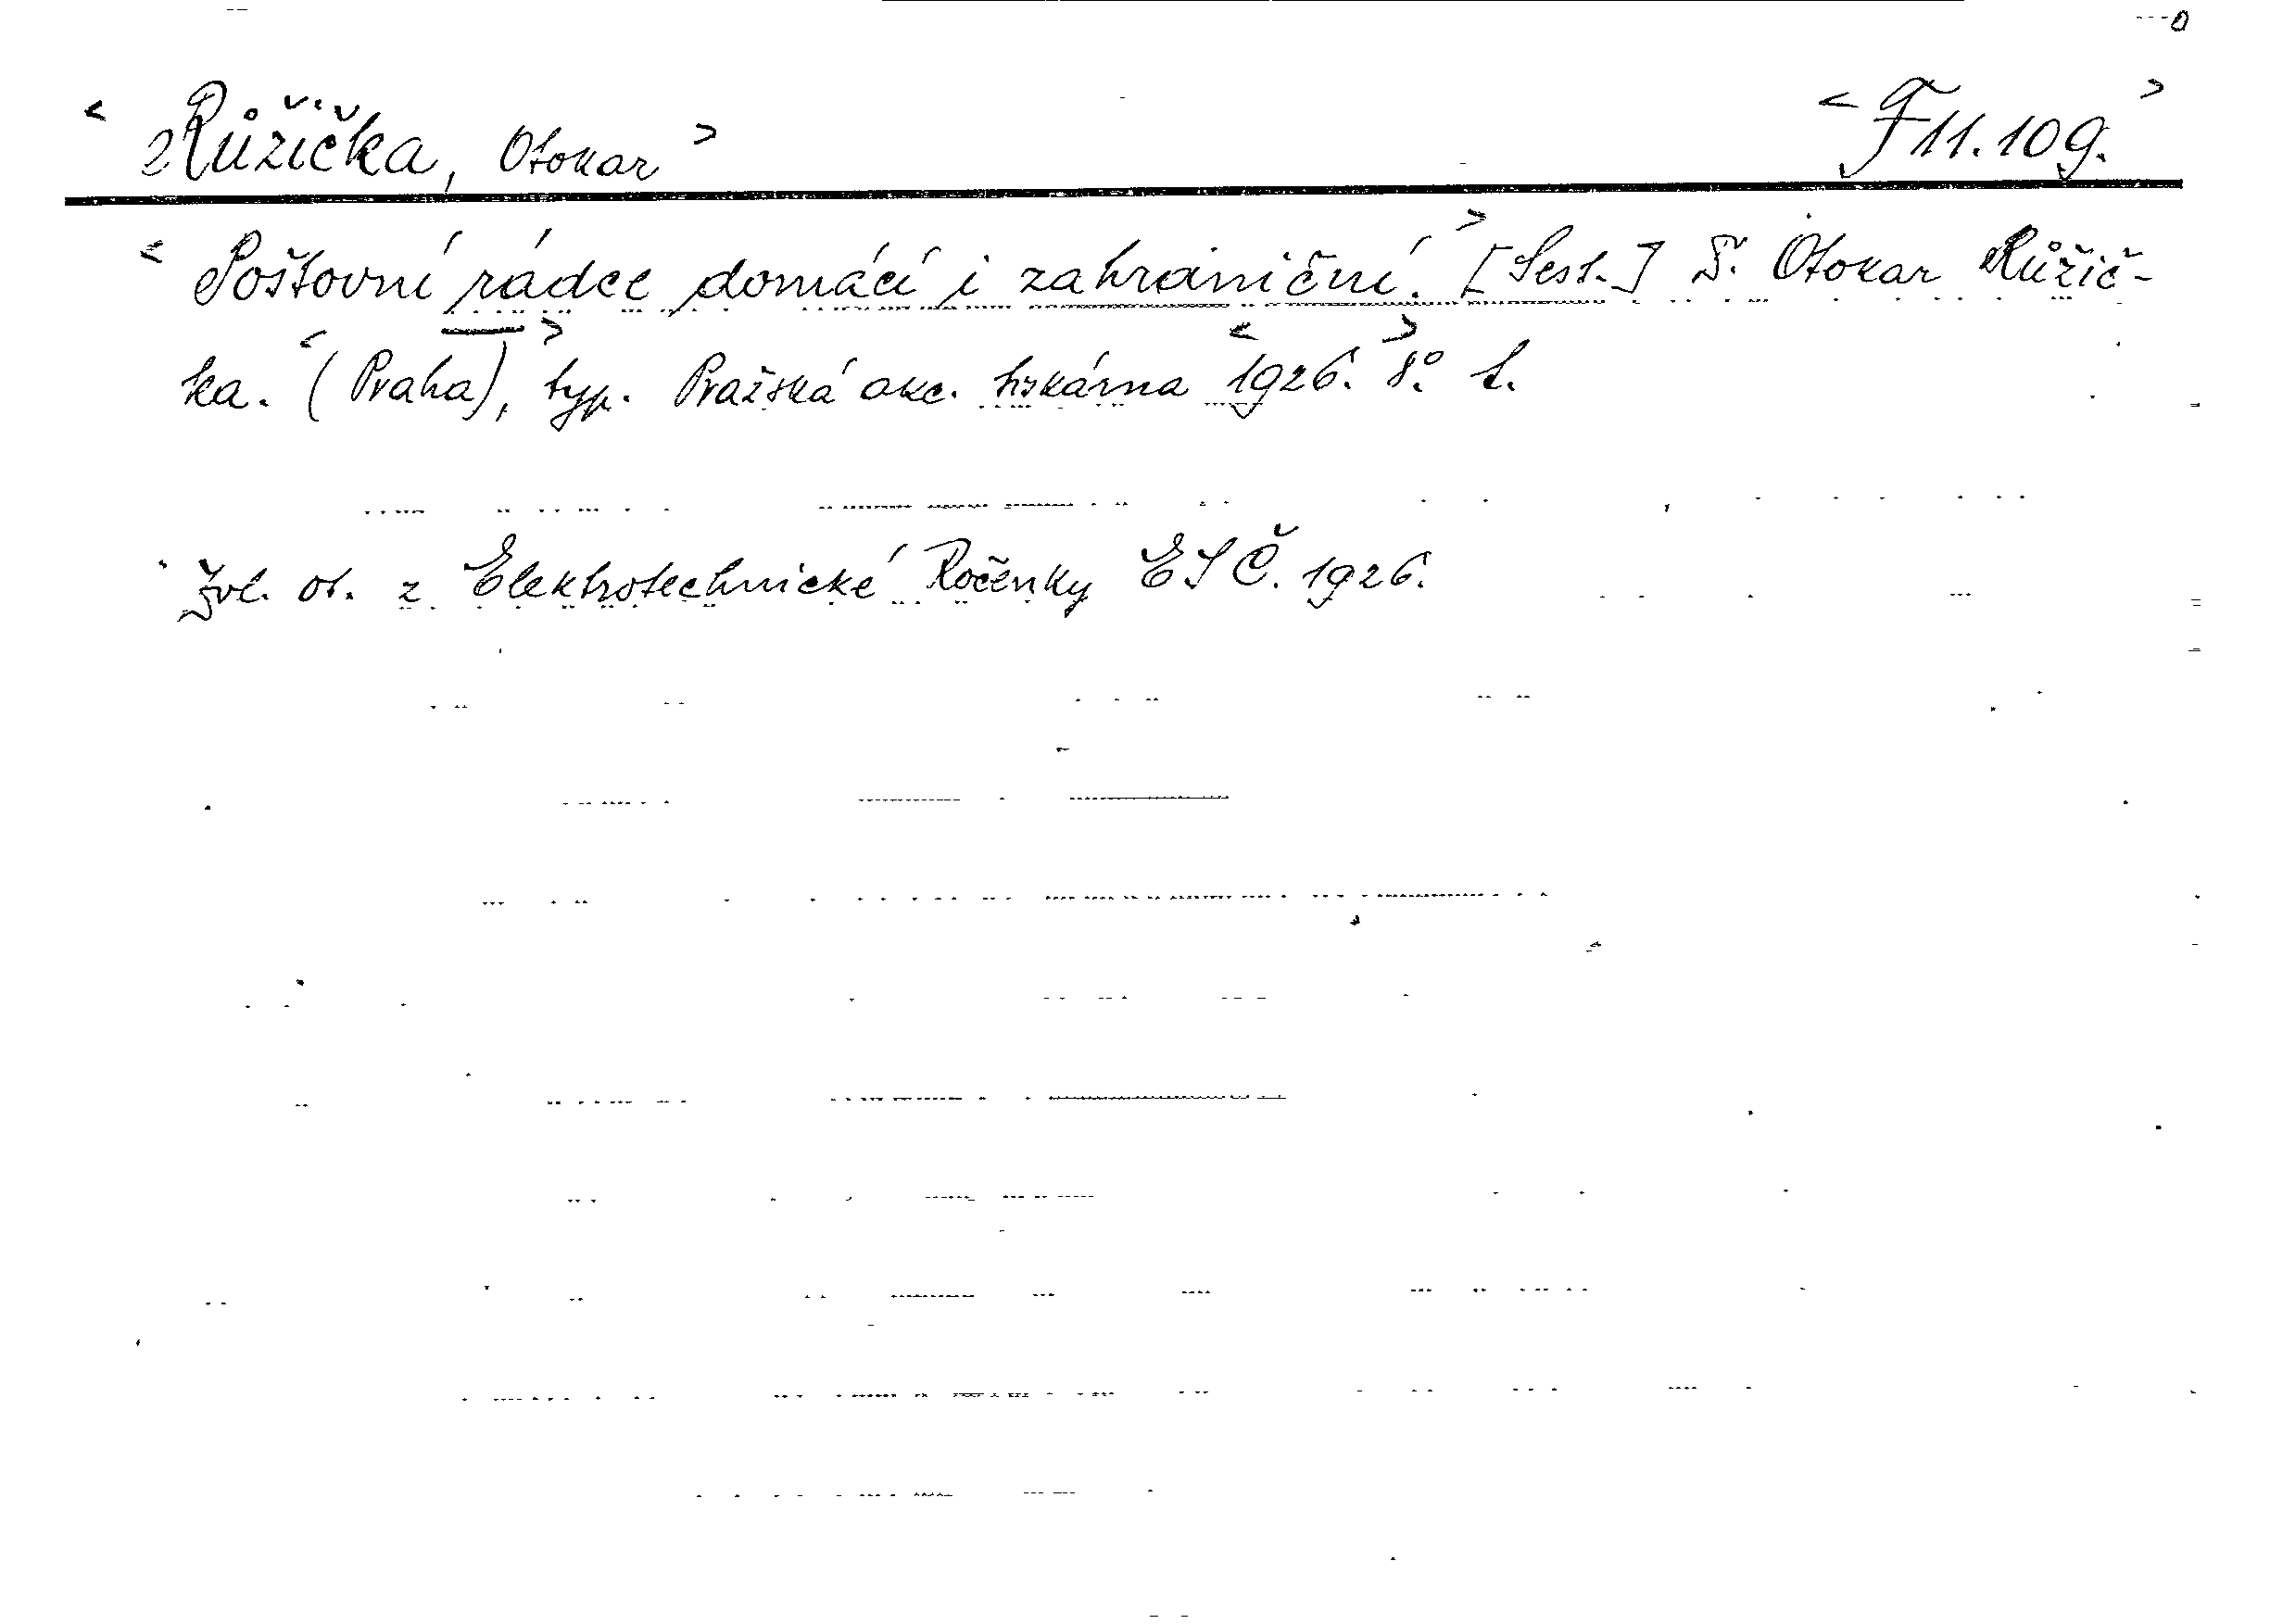 < Růžička, Otokar > < F 11.109. >
< Poštovní rádce domácí i zahraniční. > [Sest.] Otokar Růžič-
ka. < (Praha), > typ. Pražská akc. tiskárna < 1926. > 8°.
Zvl. ot. z Elektrotechnické Ročenky ESČ. 1926.